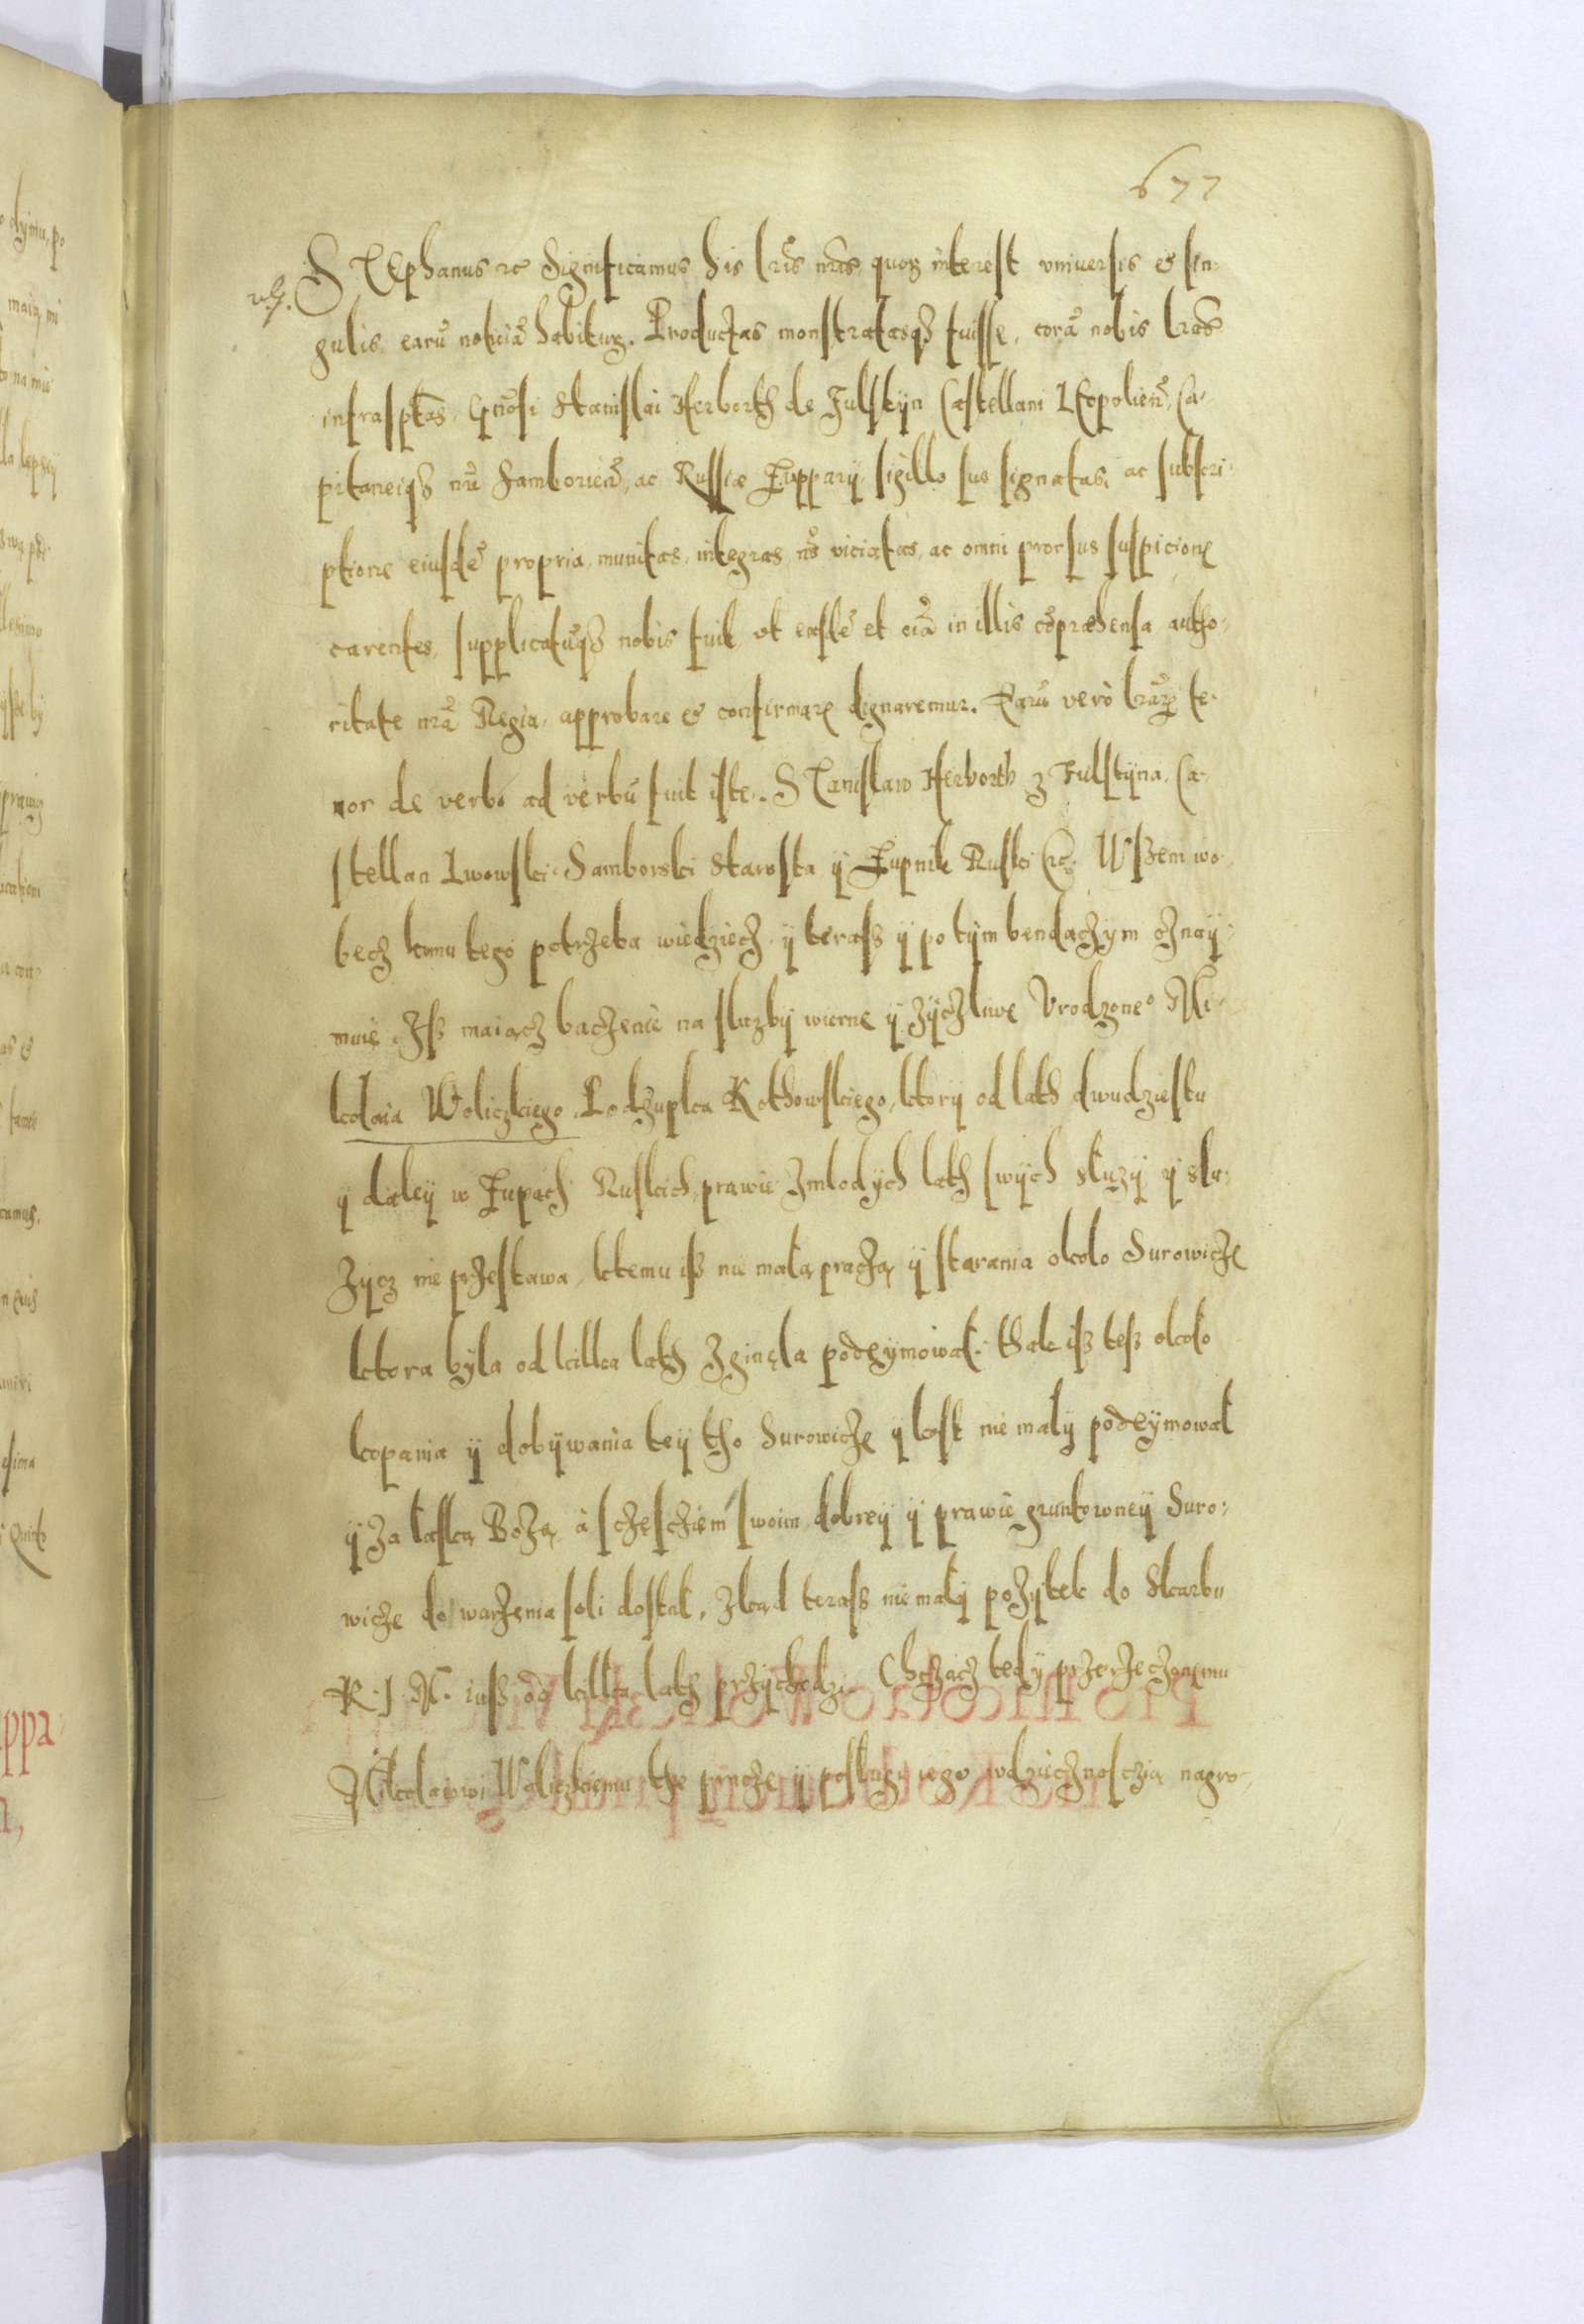 677
STEphanus etc Significamus his lris nris quoꝝ interest vniuersis et sin-
gulis earũ noticiã habituꝝ. Productas monstratasqꝫ fuisse, corã nobis lras
infrasptas, Gnosi Stanislai Herborth de Fulstÿn Castellani LEopolieñ, Ca-
pitaneiqꝫ nrĩ Samborieñ, ac Russiæ Zuppary, sigillo suo signatas, ac subscri-
ptione eiusdẽ propria munitas, integras, nõ viciatas, ac omni prorsus suspicione
carentes, supplicatũqꝫ nobis fuit, vt easdẽ et oĩa in illis cõpræhensa autho-
ritate nrã Regia, approbare et confirmare dignaremur. Earũ verò lrãrꝝ te-
nor de verbo ad verbũ fuit iste. STanislaw Herborth z Fulstÿna, Ca-
stellan Lwowski, Samborski Starosta ÿ Zupnik Ruski etc. Wszem wo-
becz komu tego potrzeba wiedziecz, ÿ terass ÿ po tÿm bendaczym oznaÿ-
muię. Iss maiącz baczenie na sluzbÿ wierne ÿ zÿczliwe Vrodzoneº Mi-
kolaia Woliczkiego Podzupka Kothowskiego, ktory od lath dwudziestu
ÿ daleÿ w Zupach Ruskich, prawie zmlodÿch lath swÿch sluzÿ ÿ slu-
zÿcz nie przestawa, ktemu iss nie małą praczą ÿ starania okolo Surowicze
ktora bÿla od kilka lath zginęla podeymował: thak iss tess okolo
kopania ÿ dobÿwania teÿ tho Surowicze ÿ koszt nie malÿ podeÿmował
ÿ za łaską Bożą, à sczęscziem swoim dobreÿ ÿ prawie gruntowneÿ Suro-
wicze do warzenia soli dostał, zkąd terass nie małÿ pożÿtek do Skarbu
K. J. M. iuss od kilka lath przÿchodzi. Chcząch tedÿ przerzeczonemu
Mikolaiowi Woliczkiemu the pracze ÿ posługi iego wdzięcznosczią nagro-